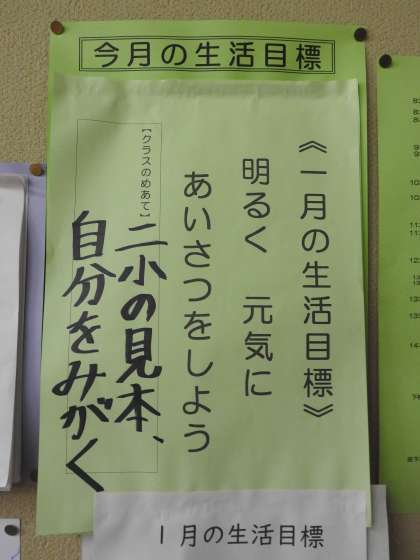 今月の生活目標
《一月の生活目標》
明るく 元気に
あいさつをしよう
【クラスのめあて】
二小の見本、
自分をみがく
1月の生活目標